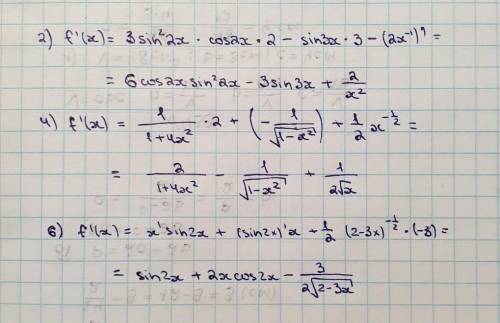 2) f'(x) = 3sin²2x · cos2x · 2 − sin3x · 3 − (2x⁻¹)' =
= 6cos2x·sin²2x − 3sin3x + 2/x²
4) f'(x) = 1/(1+4x²) · 2 + (− 1/√(1−x²)) + 1/2 x^(−1/2) =
= 2/(1+4x²) − 1/√(1−x²) + 1/(2√x)
6) f'(x) = x' sin2x + (sin2x)' x + 1/2 (2−3x)^(−1/2) · (−3) =
= sin2x + 2x cos2x − 3/(2√(2−3x))